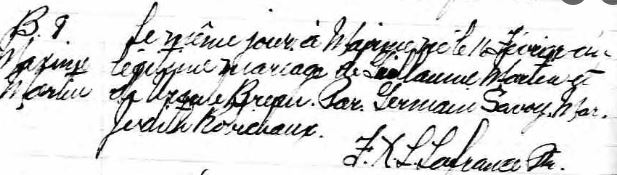 B. 8 Le même jour à Maxime né le 11 Février du
Maxime légitime mariage de Guillaume Martin et
Martin de Ursule Breau. Par. Germain Savoy. Mar.
Judith Robichaux.
F. X. L. Lafrance Ptr.